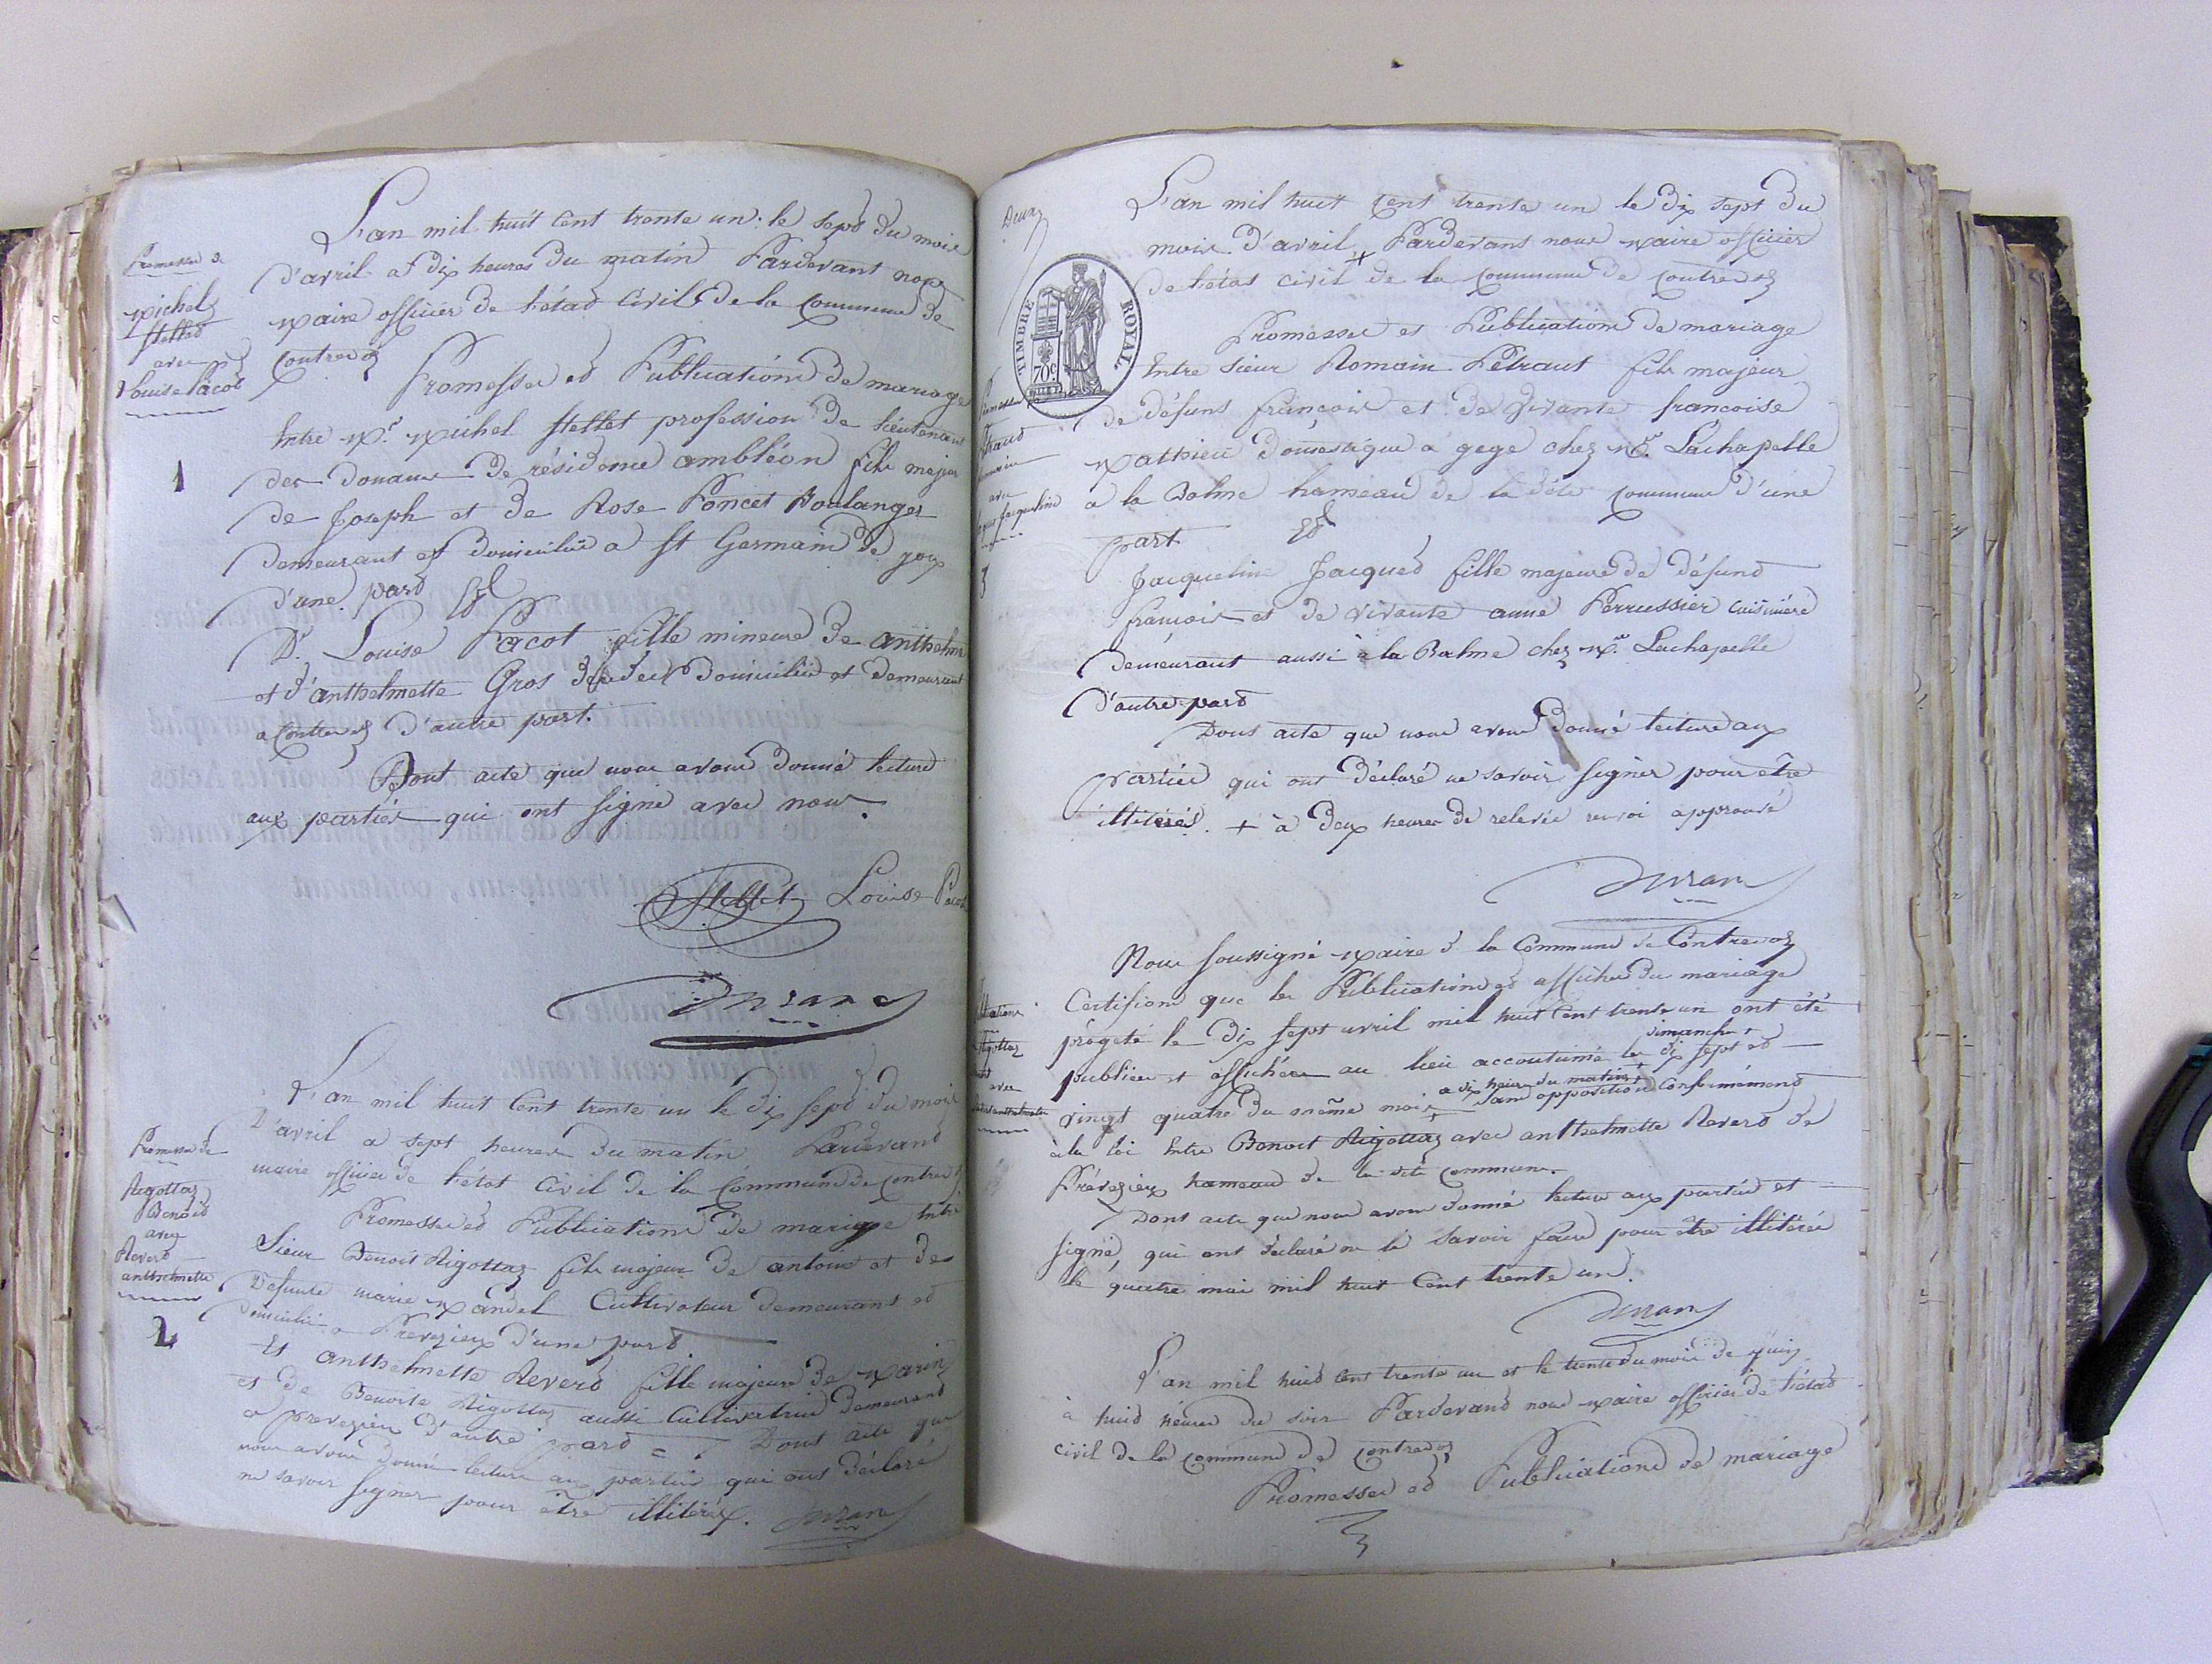 L'an mil huit cent trente un le sept du mois
d'avril a dix heures du matin Pardevant nous
maire officier de l'état civil de la commune de
Contrevoz
Promesse et Publications de mariage
Entre Mr. Michel Stellet profession de Lieutenant
des Douanes de résidence ambléon fils majeur
de Joseph et de Rose Poncet Boulanger
demeurant et domicilié a St Germain de joux
d'une part Et
De. Louise Pacot fille mineure de anthelme
et d'anthelmette Gros domiciliée et demeurant
a Contrevoz d'autre part.
Dont acte que nous avons donné lecture
aux parties qui ont signé avec nous.
Stellet Louise Pacot
Promesse de
Michel
Stellet
avec
Louise Pacot
1
L'an mil huit cent trente un le dix sept du mois
d'avril a sept heures du matin Pardevant
maire officier de l'état civil de la Commune de Contrevoz
Promesse et Publications de mariage Entre
Sieur Benoit Rigottaz fils majeur de antoine et de
défunte marie Mandel Cultivateur demeurant et
domicilié a Preveyzieu d'une part
Et anthelmette Reverd fille majeure de Marin
et de Benoite Rigottaz aussi Cultivatrice demeurant
a preveyzieu d'autre part = Dont acte que
nous avons donné lecture aux parties qui ont déclaré
ne savoir signer pour être illitérés.
Promesse de
Rigottaz
Benoit
avec
Reverd
anthelmette
2
Deux
TIMBRE ROYAL
70c.
L'an mil huit cent trente un le dix sept du
mois d'avril + Pardevant nous maire officier
de l'état civil de la Commune de Contrevoz
Promesse et Publications de mariage
Entre Sieur Romain Pétraut fils majeur
de défunt françois et de vivante francoise
Mathieu domestique a gage chez Mr. Lachapelle
a la Balme hameau de la dite commune d'une
part Et
Jacqueline Jacqued fille majeure de défunt
francois et de vivante anne Perrussier cuisinière
demeurant aussi à la Balme chez Mr. Lachapelle
d'autre part
Dont acte que nous avons donné lecture aux
parties qui ont déclaré ne savoir signer pour être
illitérés. + à deux heures de relevée renvoi approuvé
avec
3
Nous soussigné Maire de la Commune de Contrevoz
Certifions que les Publications et affiches du mariage
progeté le dix sept avril mil huit cent trente un ont été
publiées et affichées au lieu accoutumé les dimanches dix sept et
vingt quatre du même mois a dix heures du matin sans opposition Conformément
à la loi Entre Benoit Rigottaz avec anthelmette Reverd de
Préveyzieu hameau de la dite commune.
Dont acte que nous avons donné lecture aux parties et
signé, qui ont déclaré ne le savoir faire pour être illitérés
le quatre mai mil huit cent trente un.
avec
L'an mil huit cent trente un et le trente du mois de juin
à huit heures du soir Pardevant nous Maire officier de l'état
civil de la Commune de Contrevoz
Promesse et Publications de mariage